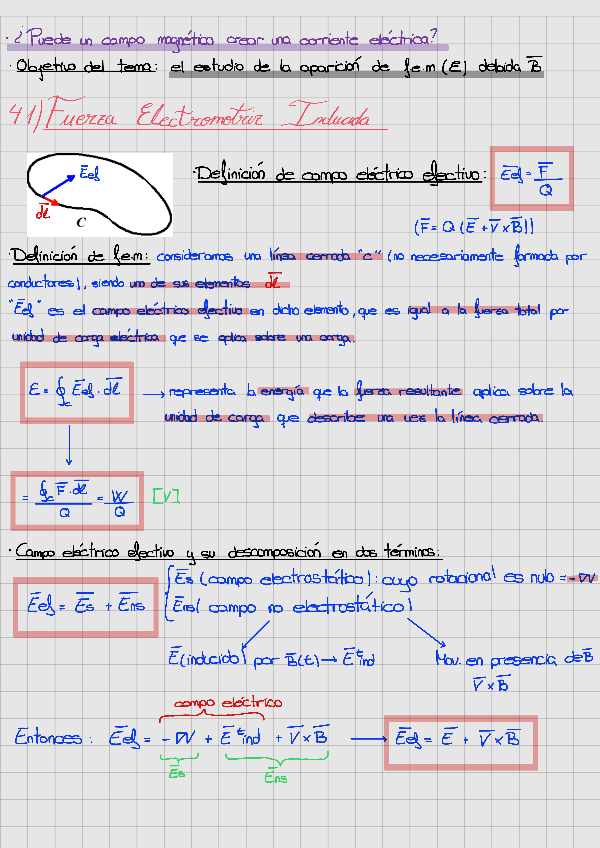 · ¿Puede un campo magnético crear una corriente eléctrica?
· Objetivo del tema: el estudio de la aparición de f.e.m (ε) debida B̅
4.1) Fuerza Electromotriz Inducida
E̅ef
d̅l̅
C
· Definición de campo eléctrico efectivo: E̅ef = F̅/Q
(F̅ = Q (E̅ + V̅×B̅))
· Definición de fem: consideramos una línea cerrada "c" (no necesariamente formada por
conductores), siendo uno de sus elementos d̅l̅
"E̅ef" es el campo eléctrico efectivo en dicho elemento, que es igual a la fuerza total por
unidad de carga eléctrica que se aplica sobre una carga.
ε = ∮c E̅ef · d̅l̅ → representa la energía que la fuerza resultante aplica sobre la
unidad de carga que describe una vez la línea cerrada.
= ∮c F̅·d̅l̅ / Q = W/Q [V]
· Campo eléctrico efectivo y su descomposición en dos términos:
E̅ef = E̅s + E̅ns
E̅s (campo electrostático): cuyo rotacional es nulo = -∇V
E̅ns (campo no electrostático)
E̅ (inducido) por B̅(t) → E̅ᵗind
Mov. en presencia de B̅
V̅×B̅
campo eléctrico
Entonces: E̅ef = -∇V + E̅ᵗind + V̅×B̅ → E̅ef = E̅ + V̅×B̅
E̅s
E̅ns